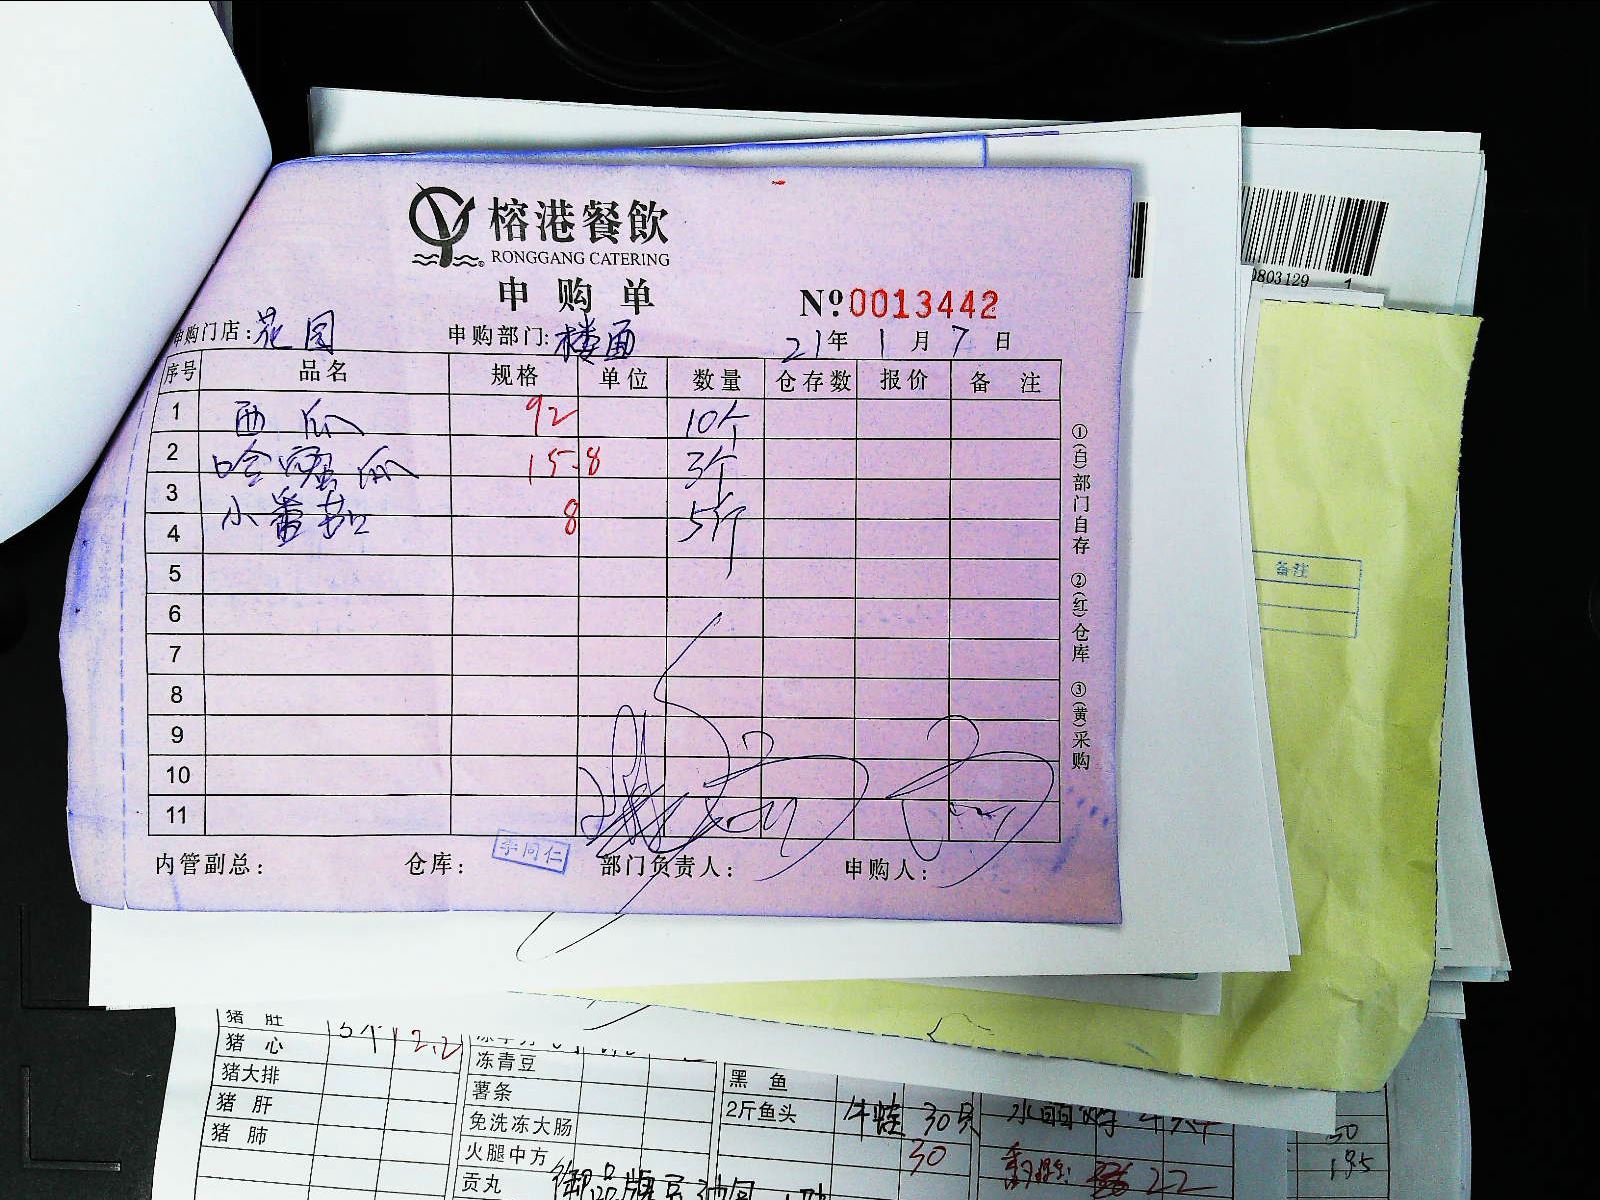 榕港餐飲
RONGGANG CATERING
申购单
№0013442
申购门店:花园 申购部门:楼面 21年1月7日
序号 品名 规格 单位 数量 仓存数 报价 备注
1 西瓜 92 10个
2 哈密瓜 15.8 3个
3 小番茄 8 5斤
4
5
6
7
8
9
10
11
内管副总: 仓库: 李同仁 部门负责人: 申购人:
①(白)部门自存 ②(红)仓库 ③(黄)采购
0803129 1
备注
猪肚 5个 12.2
猪心
猪大排
猪肝
猪肺
冻青豆
薯条
免洗冻大肠
火腿中方
贡丸
黑鱼
2斤鱼头 牛蛙 30只
30
22
50
195